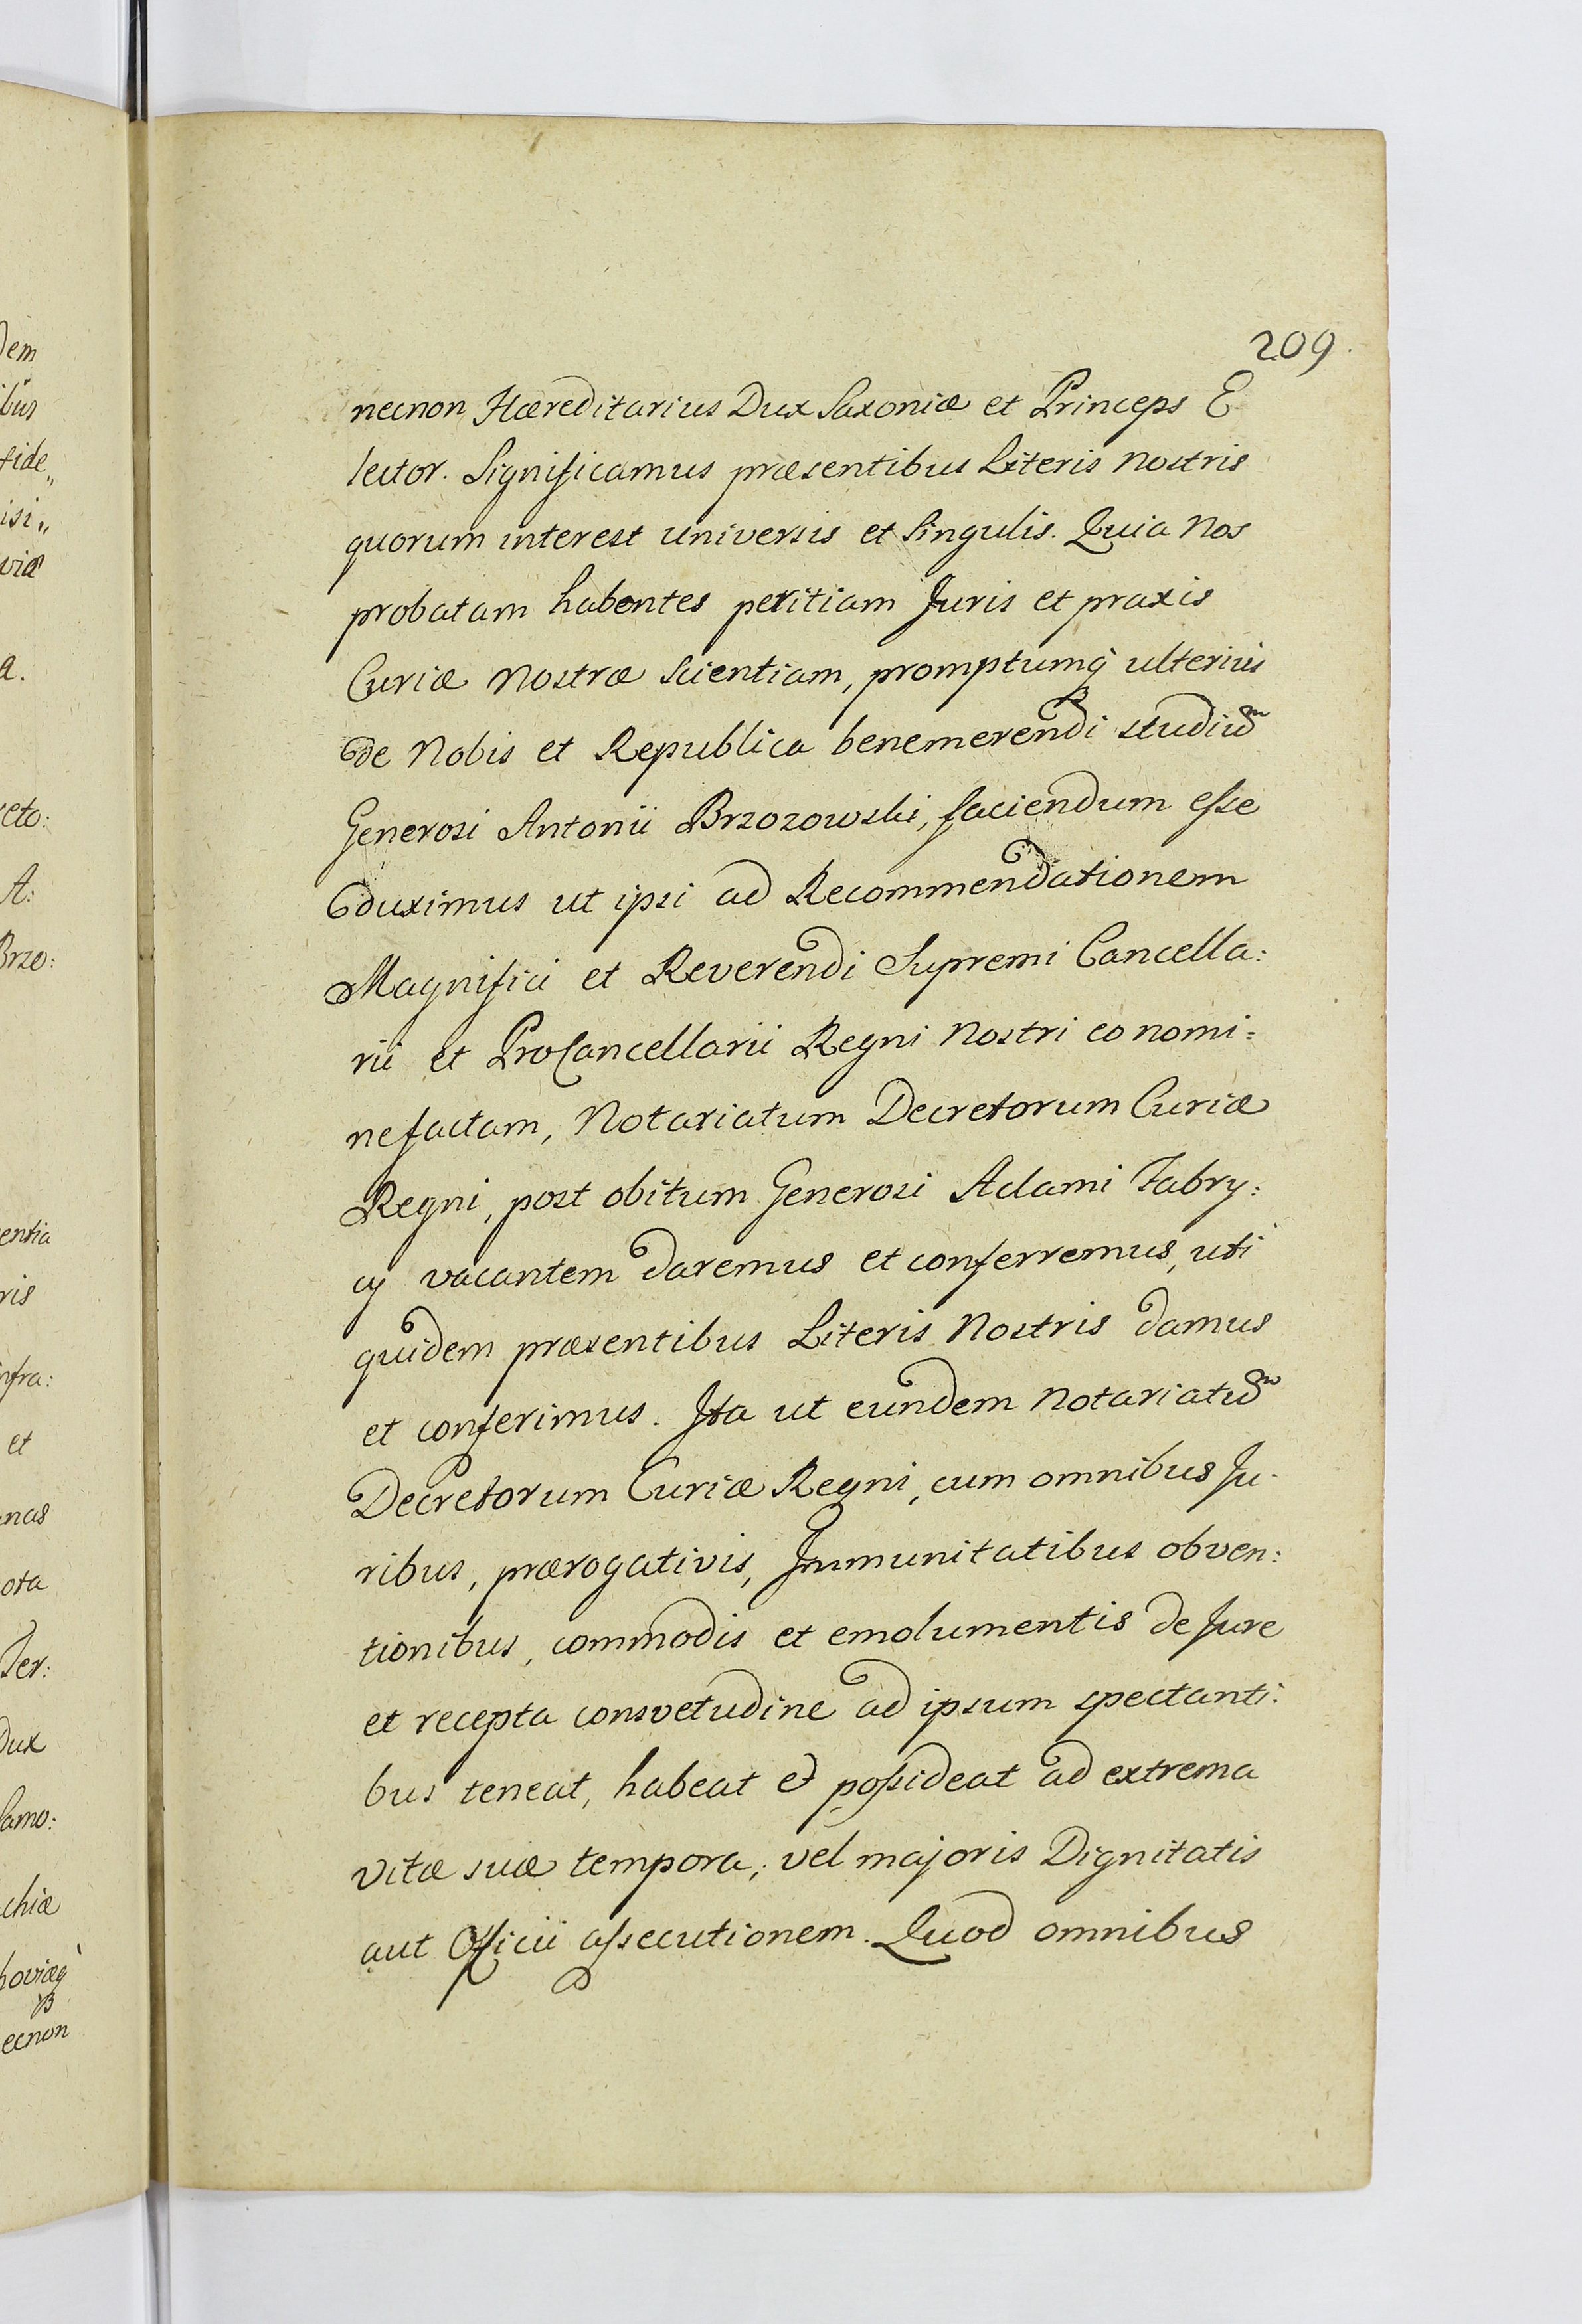 209.
necnon Hæreditarius Dux Saxoniæ et Princeps E
lector. Significamus præsentibus Literis nostris
quorum interest universis et singulis. Quia Nos
probatam habentes peritiam Juris et praxis
Curiæ Nostræ scientiam, promptumq̀ ulterius
de Nobis et Republica benemerendi studiũ
Generosi Antonii Brzozowski, faciendum esse
duximus ut ipsi ad Recommendationem
Magnifici et Reverendi Supremi Cancella:
rii et ProCancellarii Regni Nostri eo nomi=
ne factam, Notariatum Decretorum Curiæ
Regni, post obitum Generosi Adami Fabry:
cy vacantem daremus et conferremus, uti
quidem præsentibus Literis Nostris damus
et conferimus. Ita ut eundem Notariatũ
Decretorum Curiæ Regni, cum omnibus Ju-
ribus, prærogativis, Immunitatibus obven:
tionibus, commodis et emolumentis de Jure
et recepta consvetudine ad ipsum spectanti:
bus teneat, habeat et possideat ad extrema
vitæ suæ tempora, vel majoris Dignitatis
aut Officii assecutionem. Quod omnibus